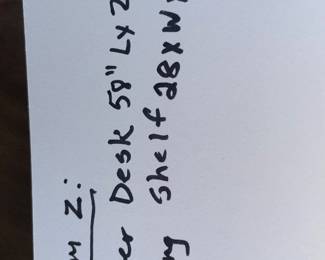 m 2:
er Desk 58" L x 2
ng Shelf 28 x W